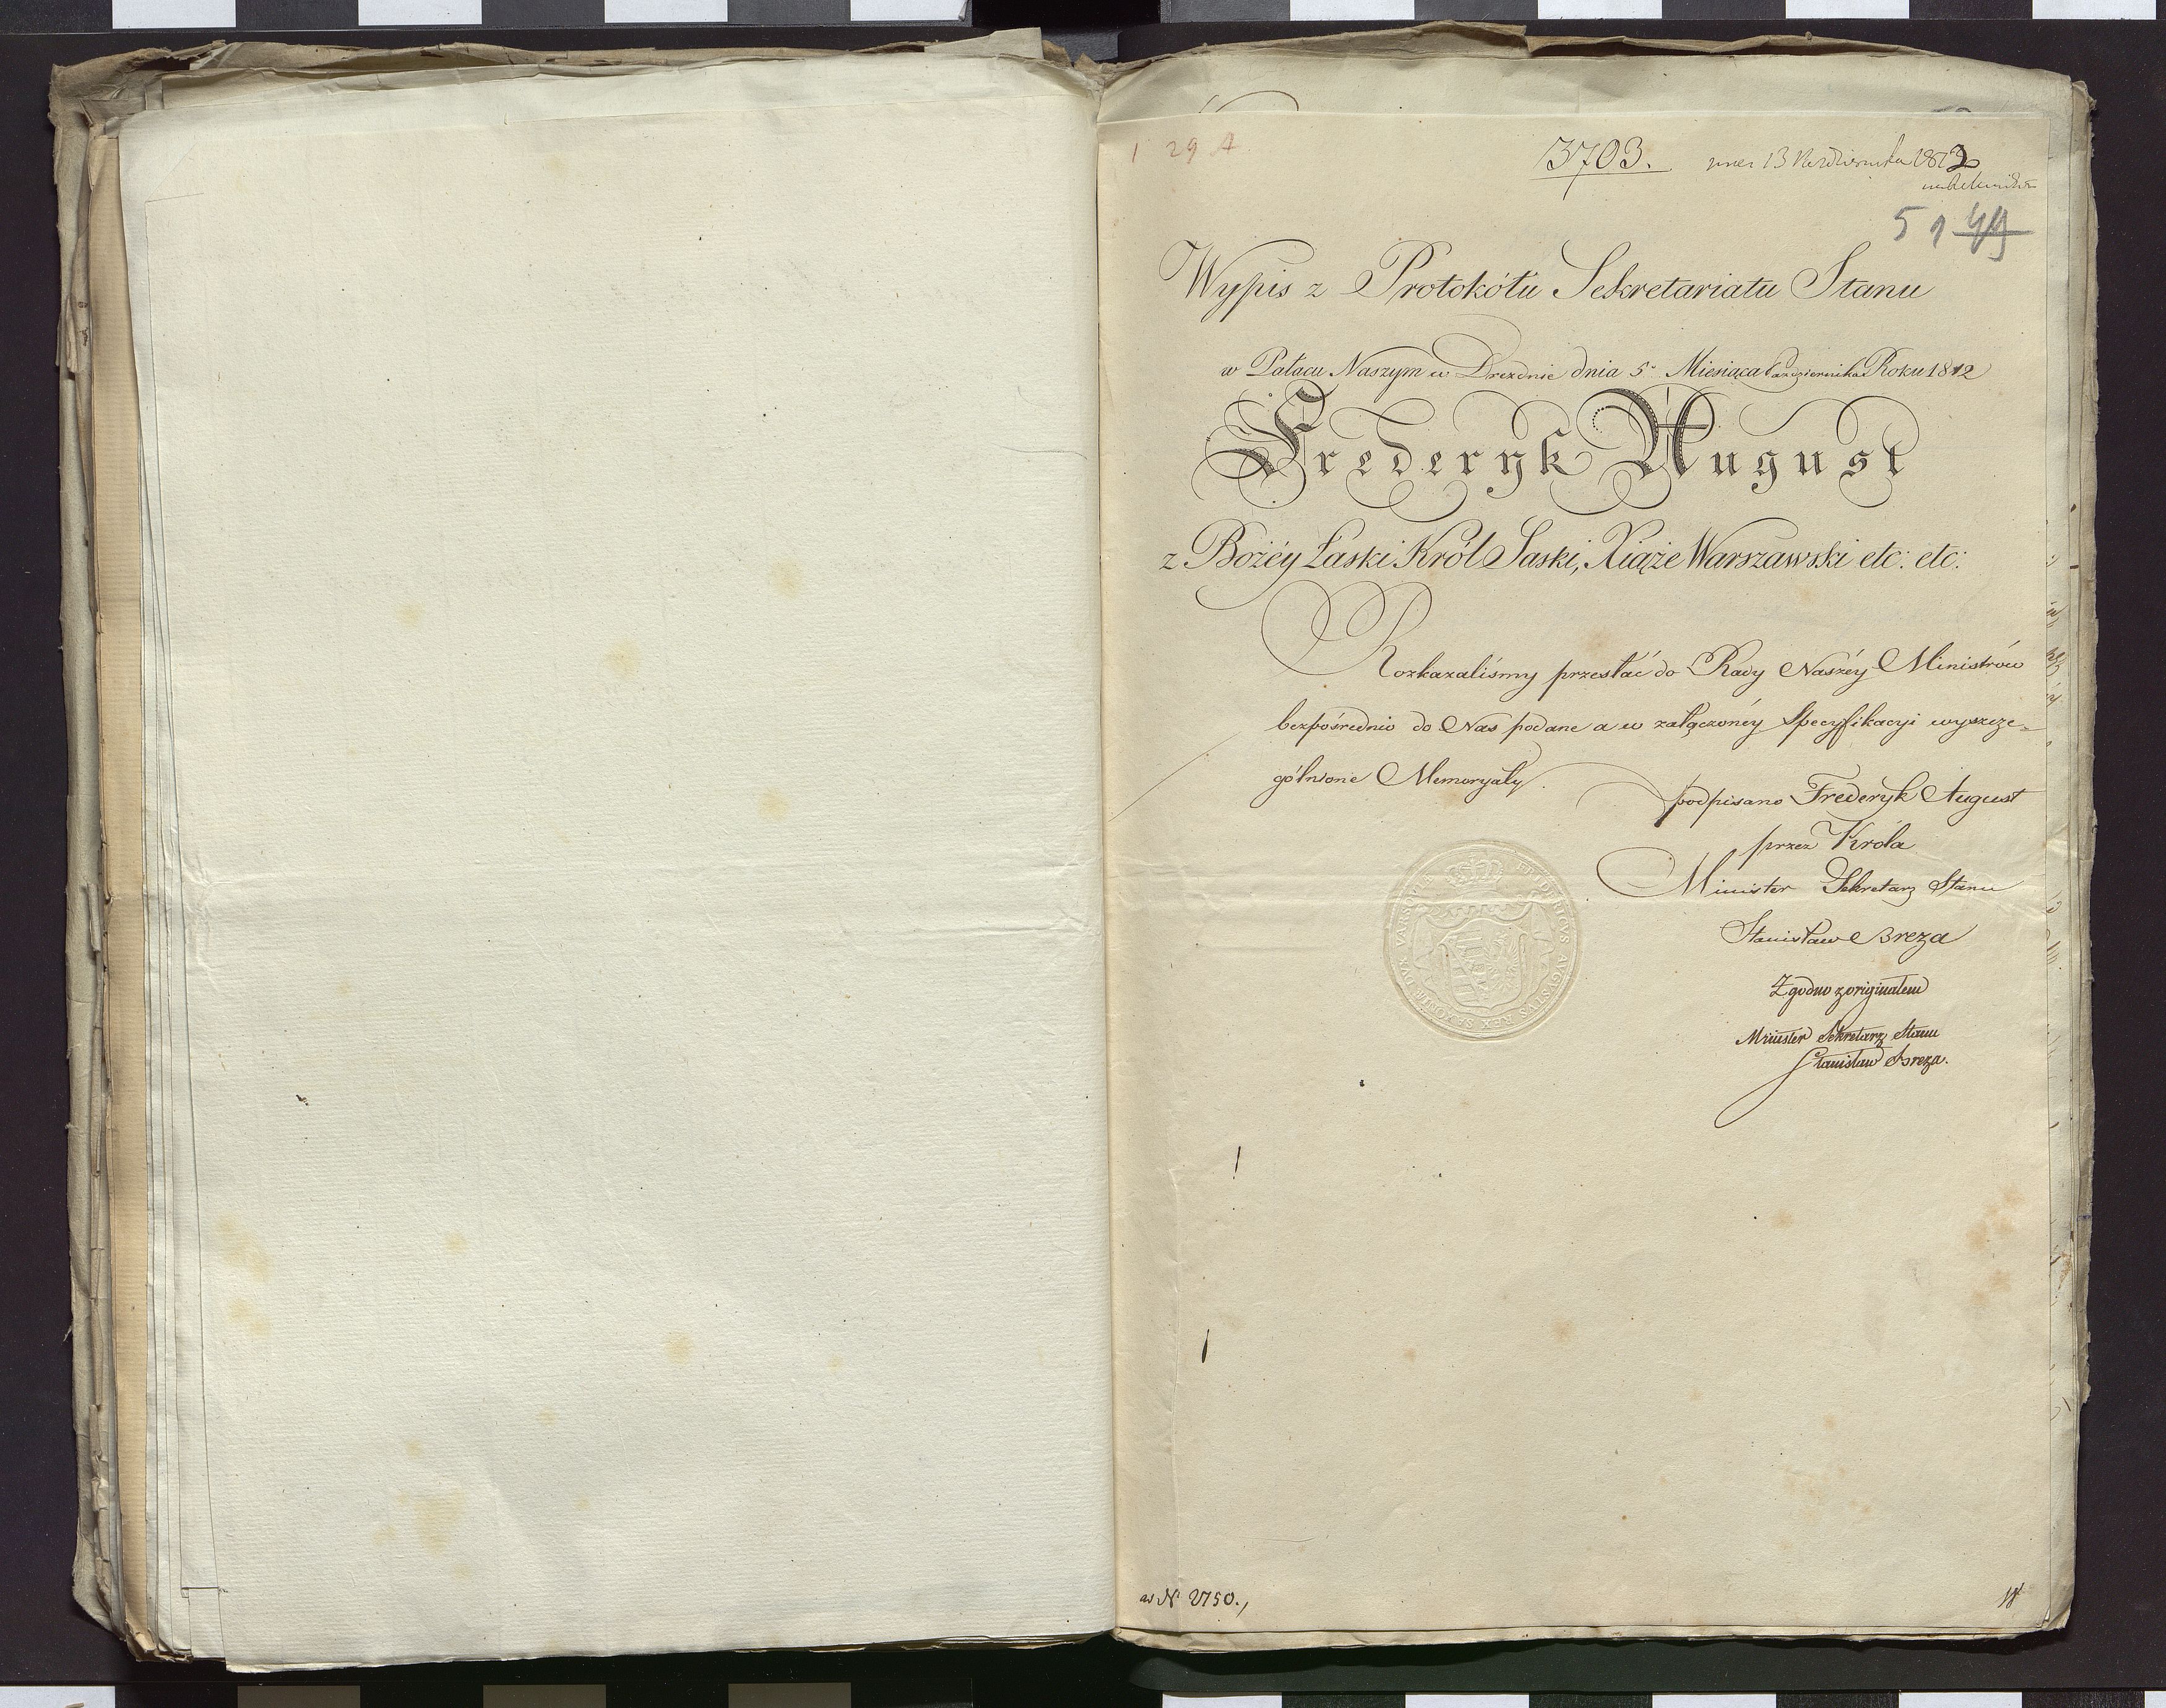 1 29 A
3703. 13 Października 1812
51 49
Wypis z Protokółu Sekretariatu Stanu
w Pałacu Naszym w Dreźnie dnia 5º Miesiąca Października Roku 1812
Frederyk August
z Bożéy Łaski Król Saski, Xiąże Warszawski etc: etc:
Rozkazaliśmy przesłać do Rady Naszéy Ministrów
bezpośrednio do Nas podane a w załączonéy Specyfikacyi wyszcze-
gólnione Memoryały.
podpisano Frederyk August
przez Króla
Minister Sekretarz Stanu
Stanisław Breza
FRIDERICVS AVGVSTVS REX SAXONIAE DVX VARSOVIAE
Zgodno z originałem
Minister Sekretarz Stanu
Stanisław Breza.
ad N 2750.,